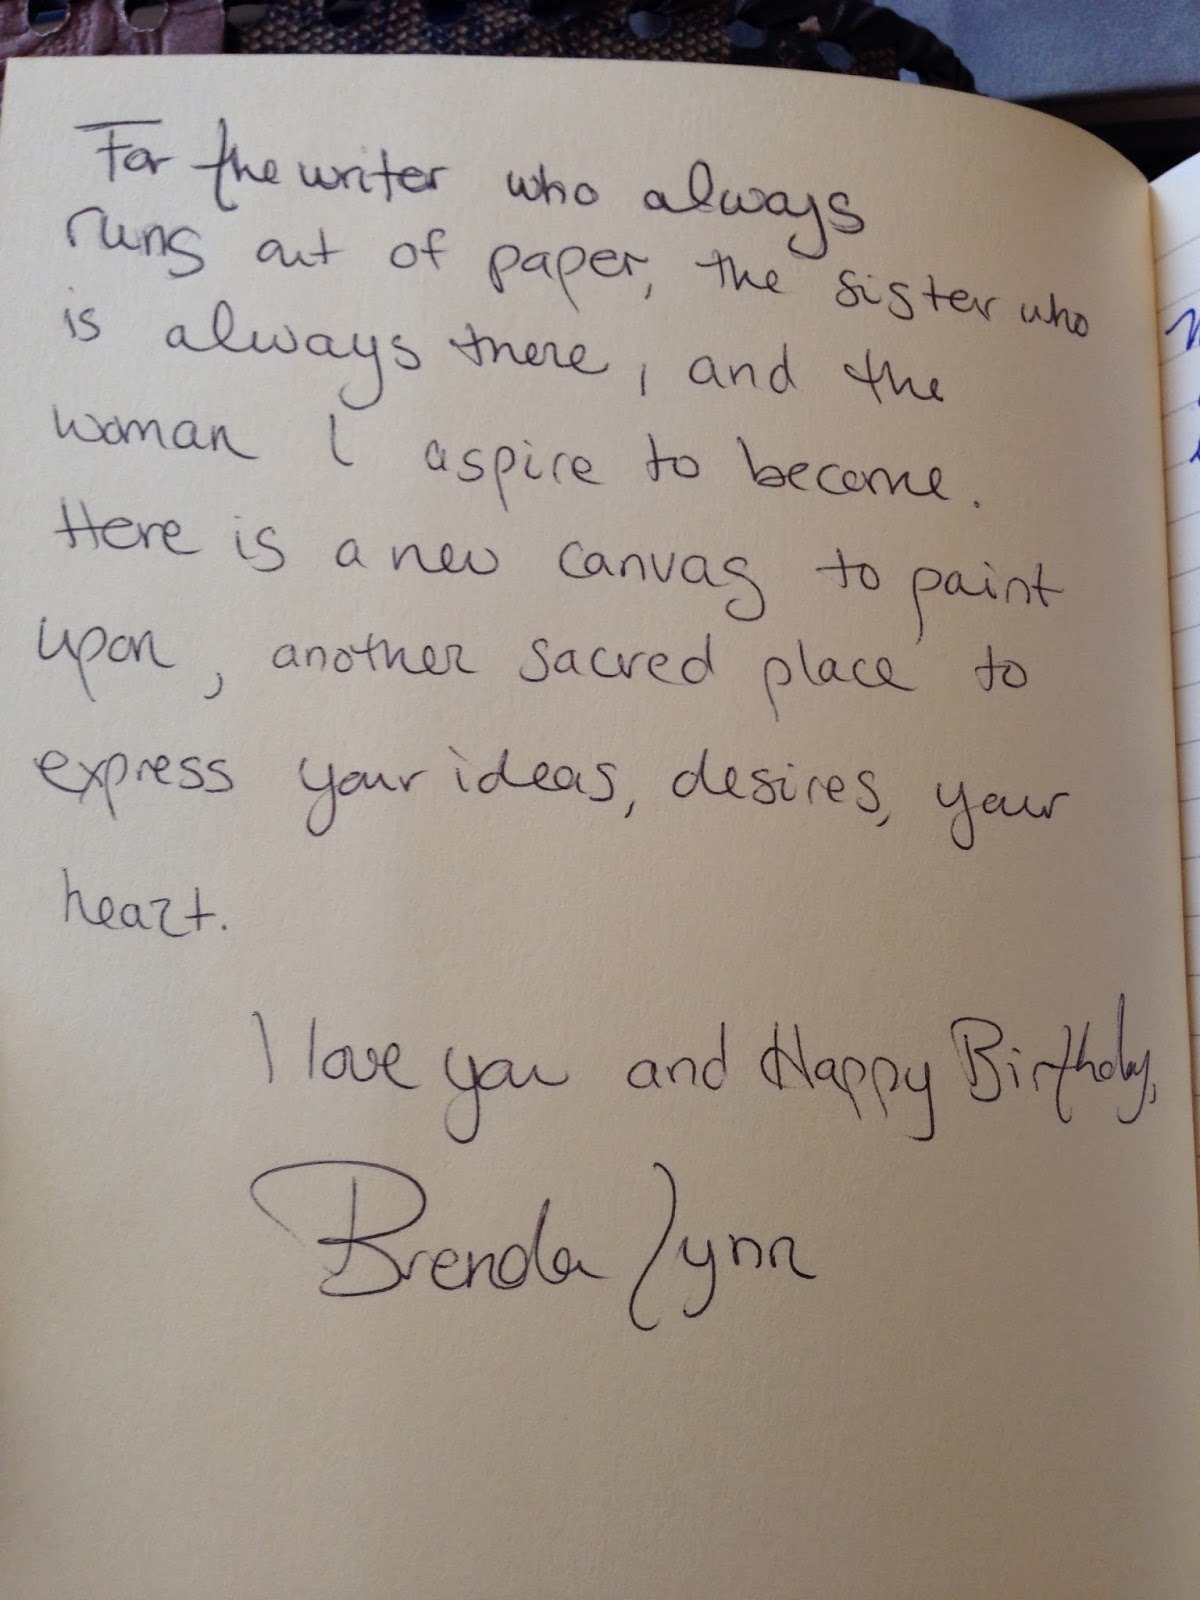 For the writer who always
runs out of paper, the sister who
is always there, and the
woman I aspire to become.
Here is a new canvas to paint
upon, another sacred place to
express your ideas, desires, your
heart.
I love you and Happy Birthday,
Brenda Lynn